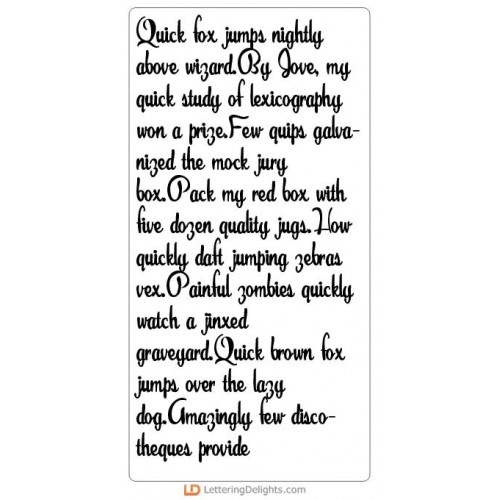 Quick fox jumps nightly
above wizard.By Jove, my
quick study of lexicography
won a prize.Few quips galva-
nized the mock jury
box.Pack my red box with
five dozen quality jugs.How
quickly daft jumping zebras
vex.Painful zombies quickly
watch a jinxed
graveyard.Quick brown fox
jumps over the lazy
dog.Amazingly few disco-
theques provide
LD LetteringDelights.com